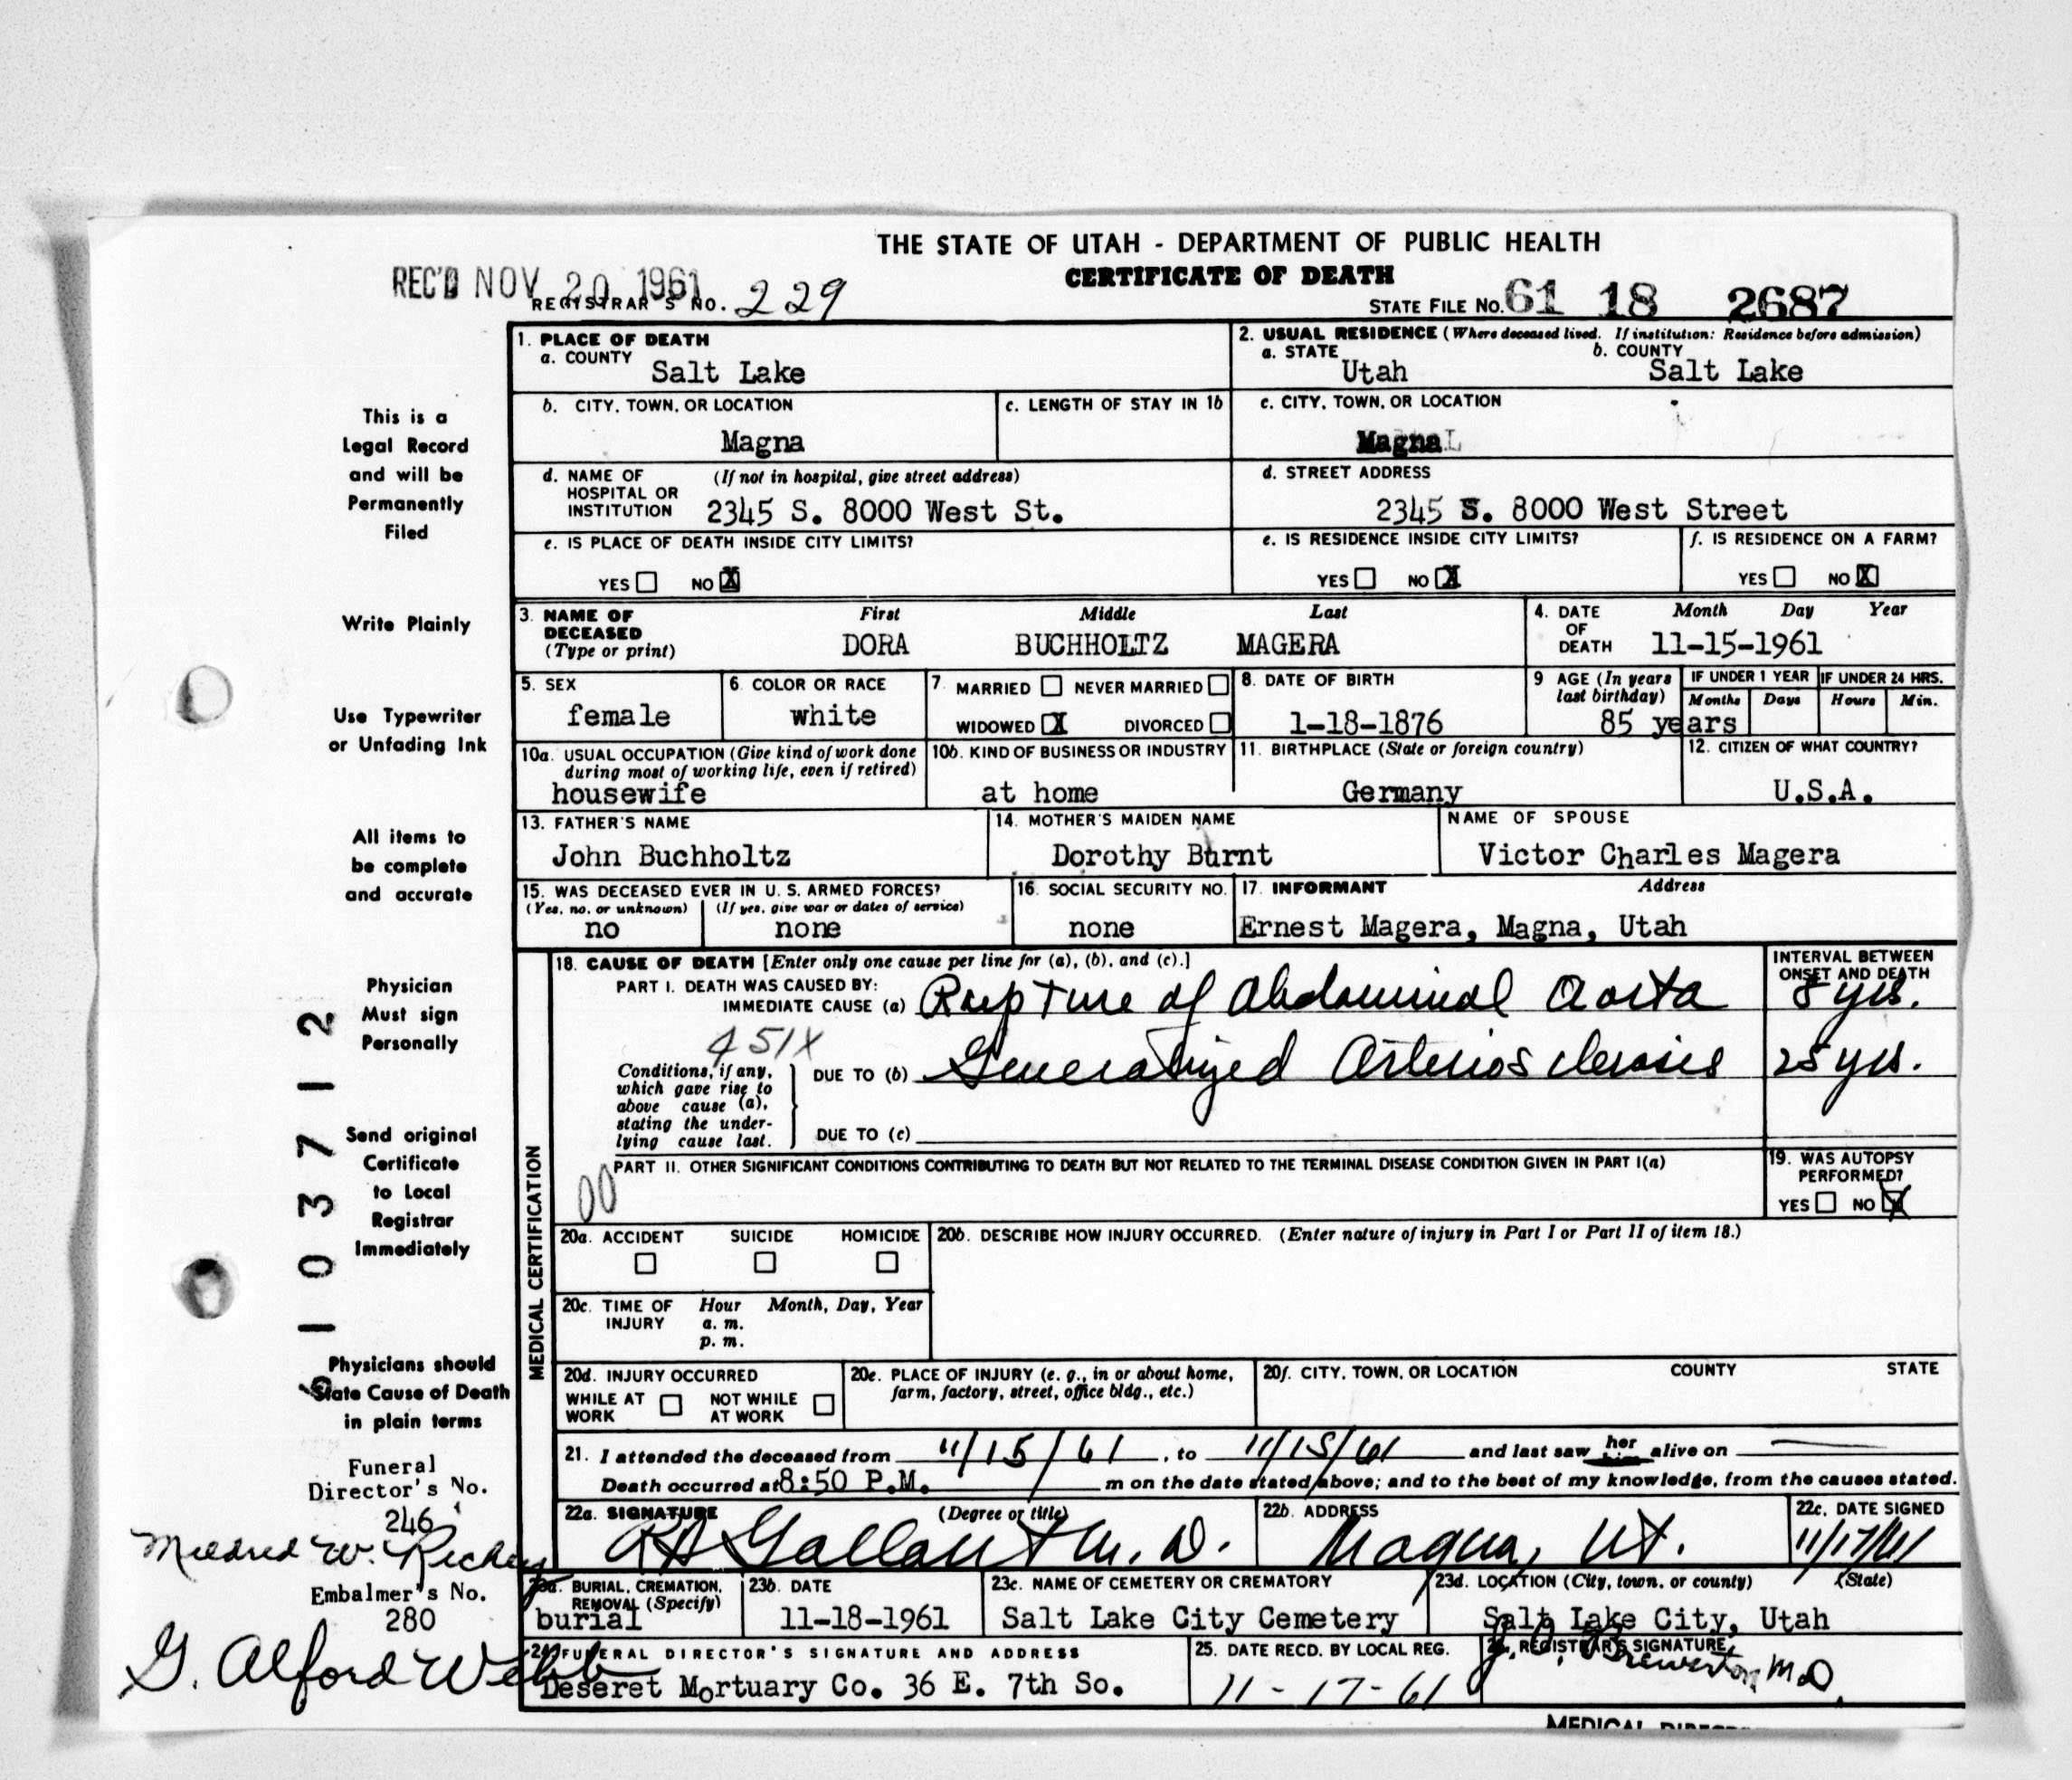 THE STATE OF UTAH - DEPARTMENT OF PUBLIC HEALTH
CERTIFICATE OF DEATH
REC'D NOV 20 1961
REGISTRAR'S NO. 229
STATE FILE NO. 61 18 2687
1. PLACE OF DEATH
a. COUNTY
Salt Lake
2. USUAL RESIDENCE (Where deceased lived. If institution: Residence before admission)
a. STATE b. COUNTY
Utah Salt Lake
b. CITY, TOWN, OR LOCATION
Magna
c. LENGTH OF STAY IN 1b
c. CITY, TOWN, OR LOCATION
Magna
d. NAME OF HOSPITAL OR INSTITUTION (If not in hospital, give street address)
2345 S. 8000 West St.
d. STREET ADDRESS
2345 S. 8000 West Street
e. IS PLACE OF DEATH INSIDE CITY LIMITS?
YES NO X
e. IS RESIDENCE INSIDE CITY LIMITS?
YES NO X
f. IS RESIDENCE ON A FARM?
YES NO X
3. NAME OF DECEASED (Type or print)
First Middle Last
DORA BUCHHOLTZ MAGERA
4. DATE OF DEATH Month Day Year
11-15-1961
5. SEX
female
6. COLOR OR RACE
white
7. MARRIED NEVER MARRIED
WIDOWED X DIVORCED
8. DATE OF BIRTH
1-18-1876
9 AGE (In years last birthday)
85 years
IF UNDER 1 YEAR IF UNDER 24 HRS.
Months Days Hours Min.
10a. USUAL OCCUPATION (Give kind of work done during most of working life, even if retired)
housewife
10b. KIND OF BUSINESS OR INDUSTRY
at home
11. BIRTHPLACE (State or foreign country)
Germany
12. CITIZEN OF WHAT COUNTRY?
U.S.A.
13. FATHER'S NAME
John Buchholtz
14. MOTHER'S MAIDEN NAME
Dorothy Burnt
NAME OF SPOUSE
Victor Charles Magera
15. WAS DECEASED EVER IN U. S. ARMED FORCES?
(Yes, no, or unknown) (If yes, give war or dates of service)
no none
16. SOCIAL SECURITY NO.
none
17. INFORMANT Address
Ernest Magera, Magna, Utah
18. CAUSE OF DEATH [Enter only one cause per line for (a), (b), and (c).]
INTERVAL BETWEEN ONSET AND DEATH
PART I. DEATH WAS CAUSED BY:
IMMEDIATE CAUSE (a) Rupture of Abdominal Aorta 8 yrs.
451X
Conditions, if any, which gave rise to above cause (a), stating the underlying cause last.
DUE TO (b) Generalized Arteriosclerosis 25 yrs.
DUE TO (c)
PART II. OTHER SIGNIFICANT CONDITIONS CONTRIBUTING TO DEATH BUT NOT RELATED TO THE TERMINAL DISEASE CONDITION GIVEN IN PART I(a)
00
19. WAS AUTOPSY PERFORMED?
YES NO X
MEDICAL CERTIFICATION
20a. ACCIDENT SUICIDE HOMICIDE
20b. DESCRIBE HOW INJURY OCCURRED. (Enter nature of injury in Part I or Part II of item 18.)
20c. TIME OF INJURY Hour Month, Day, Year
a. m.
p. m.
20d. INJURY OCCURRED
WHILE AT WORK NOT WHILE AT WORK
20e. PLACE OF INJURY (e. g., in or about home, farm, factory, street, office bldg., etc.)
20f. CITY, TOWN, OR LOCATION COUNTY STATE
21. I attended the deceased from 11/15/61, to 11/15/61 and last saw her him alive on
Death occurred at 8:50 P.M. m on the date stated above; and to the best of my knowledge, from the causes stated.
22a. SIGNATURE (Degree or title)
RA Gallant M.D.
22b. ADDRESS
Magna, Ut.
22c. DATE SIGNED
11/17/61
23a. BURIAL, CREMATION, REMOVAL (Specify)
burial
23b. DATE
11-18-1961
23c. NAME OF CEMETERY OR CREMATORY
Salt Lake City Cemetery
23d. LOCATION (City, town, or county) (State)
Salt Lake City, Utah
24. FUNERAL DIRECTOR'S SIGNATURE AND ADDRESS
Deseret Mortuary Co. 36 E. 7th So.
25. DATE RECD. BY LOCAL REG.
11-17-61
26. REGISTRAR'S SIGNATURE
Brewerton, MD.
This is a
Legal Record
and will be
Permanently
Filed
Write Plainly
Use Typewriter
or Unfading Ink
All items to
be complete
and accurate
Physician
Must sign
Personally
Send original
Certificate
to Local
Registrar
Immediately
Physicians should
State Cause of Death
in plain terms
Funeral
Director's No.
246
Mildred W. Richey
Embalmer's No.
280
G. Alford Webb